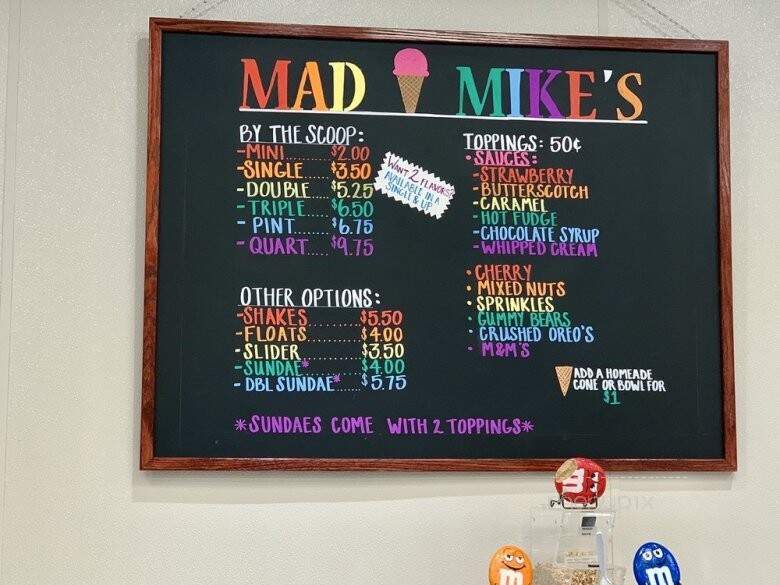 MAD MIKE'S
BY THE SCOOP:
-MINI......$2.00
-SINGLE....$3.50
-DOUBLE....$5.25
-TRIPLE....$6.50
- PINT.....$6.75
- QUART....$9.75
WANT 2 FLAVORS?
AVAILABLE IN A
SINGLE & UP
OTHER OPTIONS:
-SHAKES........$5.50
-FLOATS........$4.00
-SLIDER........$3.50
-SUNDAE*.......$4.00
- DBL SUNDAE*....$5.75
*SUNDAES COME WITH 2 TOPPINGS*
TOPPINGS: 50¢
• SAUCES:
-STRAWBERRY
-BUTTERSCOTCH
-CARAMEL
-HOT FUDGE
-CHOCOLATE SYRUP
-WHIPPED CREAM
• CHERRY
• MIXED NUTS
• SPRINKLES
• GUMMY BEARS
• CRUSHED OREO'S
• M&M'S
ADD A HOMEADE
CONE OR BOWL FOR
$1
m
m